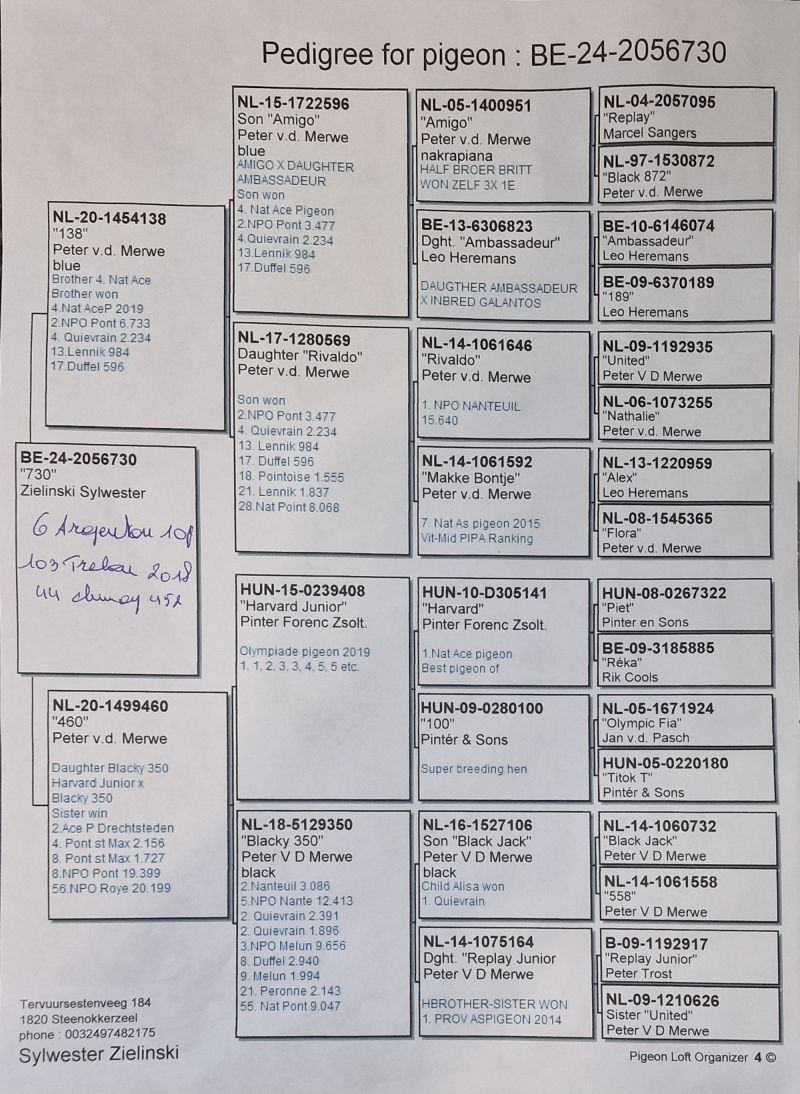 Pedigree for pigeon : BE-24-2056730
BE-24-2056730
"730"
Zielinski Sylwester
6 Argenton 108
103 Trelou 2018
44 chimay 452
NL-20-1454138
"138"
Peter v.d. Merwe
blue
Brother 4. Nat Ace
Brother won
4.Nat AceP 2019
2.NPO Pont 6.733
4. Quievrain 2.234
13.Lennik 984
17.Duffel 596
NL-20-1499460
"460"
Peter v.d. Merwe
Daughter Blacky 350
Harvard Junior x
Blacky 350
Sister win
2.Ace P Drechtsteden
4. Pont st Max 2.156
8. Pont st Max 1.727
8.NPO Pont 19.399
56.NPO Roye 20.199
NL-15-1722596
Son "Amigo"
Peter v.d. Merwe
blue
AMIGO X DAUGHTER
AMBASSADEUR
Son won
4. Nat Ace Pigeon
2.NPO Pont 3.477
4.Quievrain 2.234
13.Lennik 984
17.Duffel 596
NL-17-1280569
Daughter "Rivaldo"
Peter v.d. Merwe
Son won
2.NPO Pont 3.477
4. Quievrain 2.234
13. Lennik 984
17. Duffel 596
18. Pointoise 1.555
21. Lennik 1.837
28.Nat Point 8.068
HUN-15-0239408
"Harvard Junior"
Pinter Forenc Zsolt.
Olympiade pigeon 2019
1, 1, 2, 3, 3, 4, 5, 5 etc.
NL-18-5129350
"Blacky 350"
Peter V D Merwe
black
2.Nanteuil 3.086
5.NPO Nante 12.413
2. Quievrain 2.391
2. Quievrain 1.896
3.NPO Melun 9.656
8. Duffel 2.940
9. Melun 1.994
21. Peronne 2.143
55. Nat Pont 9.047
NL-05-1400951
"Amigo"
Peter v.d. Merwe
nakrapiana
HALF BROER BRITT
WON ZELF 3X 1E
BE-13-6306823
Dght. "Ambassadeur"
Leo Heremans
DAUGTHER AMBASSADEUR
X INBRED GALANTOS
NL-14-1061646
"Rivaldo"
Peter v.d. Merwe
1. NPO NANTEUIL
15.640
NL-14-1061592
"Makke Bontje"
Peter v.d. Merwe
7. Nat As pigeon 2015
Vit-Mid PIPA Ranking
HUN-10-D305141
"Harvard"
Pinter Forenc Zsolt.
1.Nat Ace pigeon
Best pigeon of
HUN-09-0280100
"100"
Pintér & Sons
Super breeding hen
NL-16-1527106
Son "Black Jack"
Peter V D Merwe
black
Child Alisa won
1. Quievrain
NL-14-1075164
Dght. "Replay Junior
Peter V D Merwe
HBROTHER-SISTER WON
1. PROV ASPIGEON 2014
NL-04-2057095
"Replay"
Marcel Sangers
NL-97-1530872
"Black 872"
Peter v.d. Merwe
BE-10-6146074
"Ambassadeur"
Leo Heremans
BE-09-6370189
"189"
Leo Heremans
NL-09-1192935
"United"
Peter V D Merwe
NL-06-1073255
"Nathalie"
Peter v.d. Merwe
NL-13-1220959
"Alex"
Leo Heremans
NL-08-1545365
"Flora"
Peter v.d. Merwe
HUN-08-0267322
"Piet"
Pinter en Sons
BE-09-3185885
"Réka"
Rik Cools
NL-05-1671924
"Olympic Fia"
Jan v.d. Pasch
HUN-05-0220180
"Titok T"
Pintér & Sons
NL-14-1060732
"Black Jack"
Peter V D Merwe
NL-14-1061558
"558"
Peter V D Merwe
B-09-1192917
"Replay Junior"
Peter Trost
NL-09-1210626
Sister "United"
Peter V D Merwe
Tervuursestenveeg 184
1820 Steenokkerzeel
phone : 0032497482175
Sylwester Zielinski
Pigeon Loft Organizer 4 ©